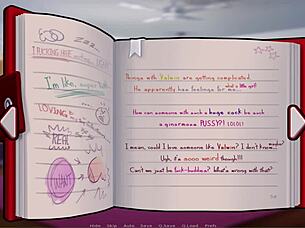 I'm like, super
LOVING
REAL
I WANT
Things with Valwin are getting complicated.
He apparently has feelings for me...
what a little girl!
How can someone with such a huge cock be such
a ginormous PUSSY?! LOLOL!
I mean, could I love someone like Valwin? I don't know
Ugh, I'm sooo weird though!!!
Can't we just be fuck-buddies? What's wrong with that?
Hide Skip Auto Save Q.Save Q.Load Prefs